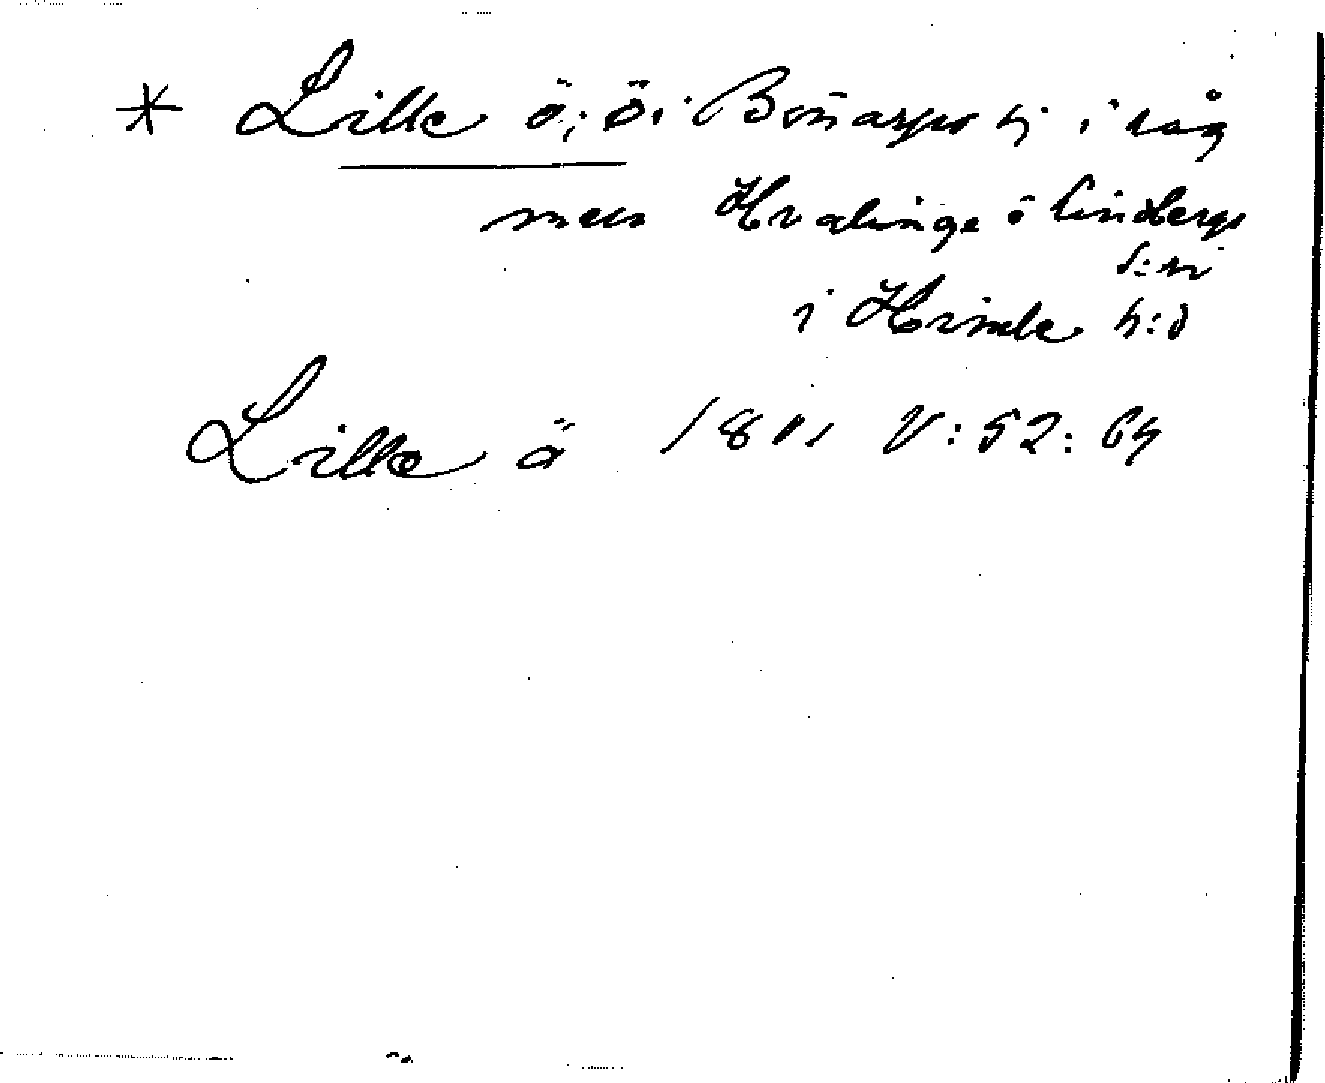 * Lille ö, ö i Bönarps hj i råg
men Hvalinge ö Lindbergs
s:n
i Himle h:d
Lille ö 1811 V:52:64